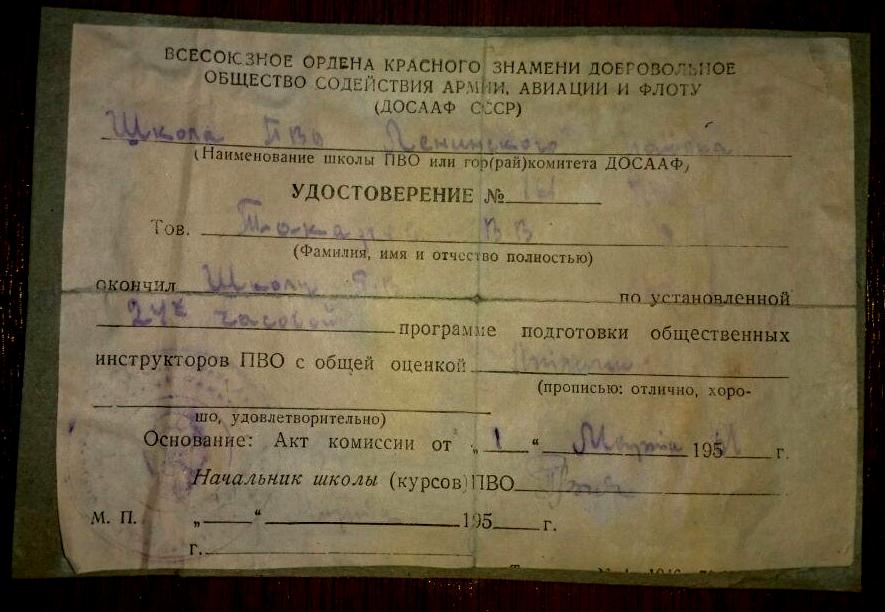 ВСЕСОЮЗНОЕ ОРДЕНА КРАСНОГО ЗНАМЕНИ ДОБРОВОЛЬНОЕ
ОБЩЕСТВО СОДЕЙСТВИЯ АРМИИ, АВИАЦИИ И ФЛОТУ
(ДОСААФ СССР)
Школа ПВО Ленинского района
(Наименование школы ПВО или гор(рай)комитета ДОСААФ)
УДОСТОВЕРЕНИЕ №
Тов. ВВ
(Фамилия, имя и отчество полностью)
окончил Школу по установленной
24х часовой программе подготовки общественных
инструкторов ПВО с общей оценкой
(прописью: отлично, хоро-
шо, удовлетворительно)
Основание: Акт комиссии от „1“ Марта 195 г.
Начальник школы (курсов) ПВО
М. П. „ “ 195 г.
г.